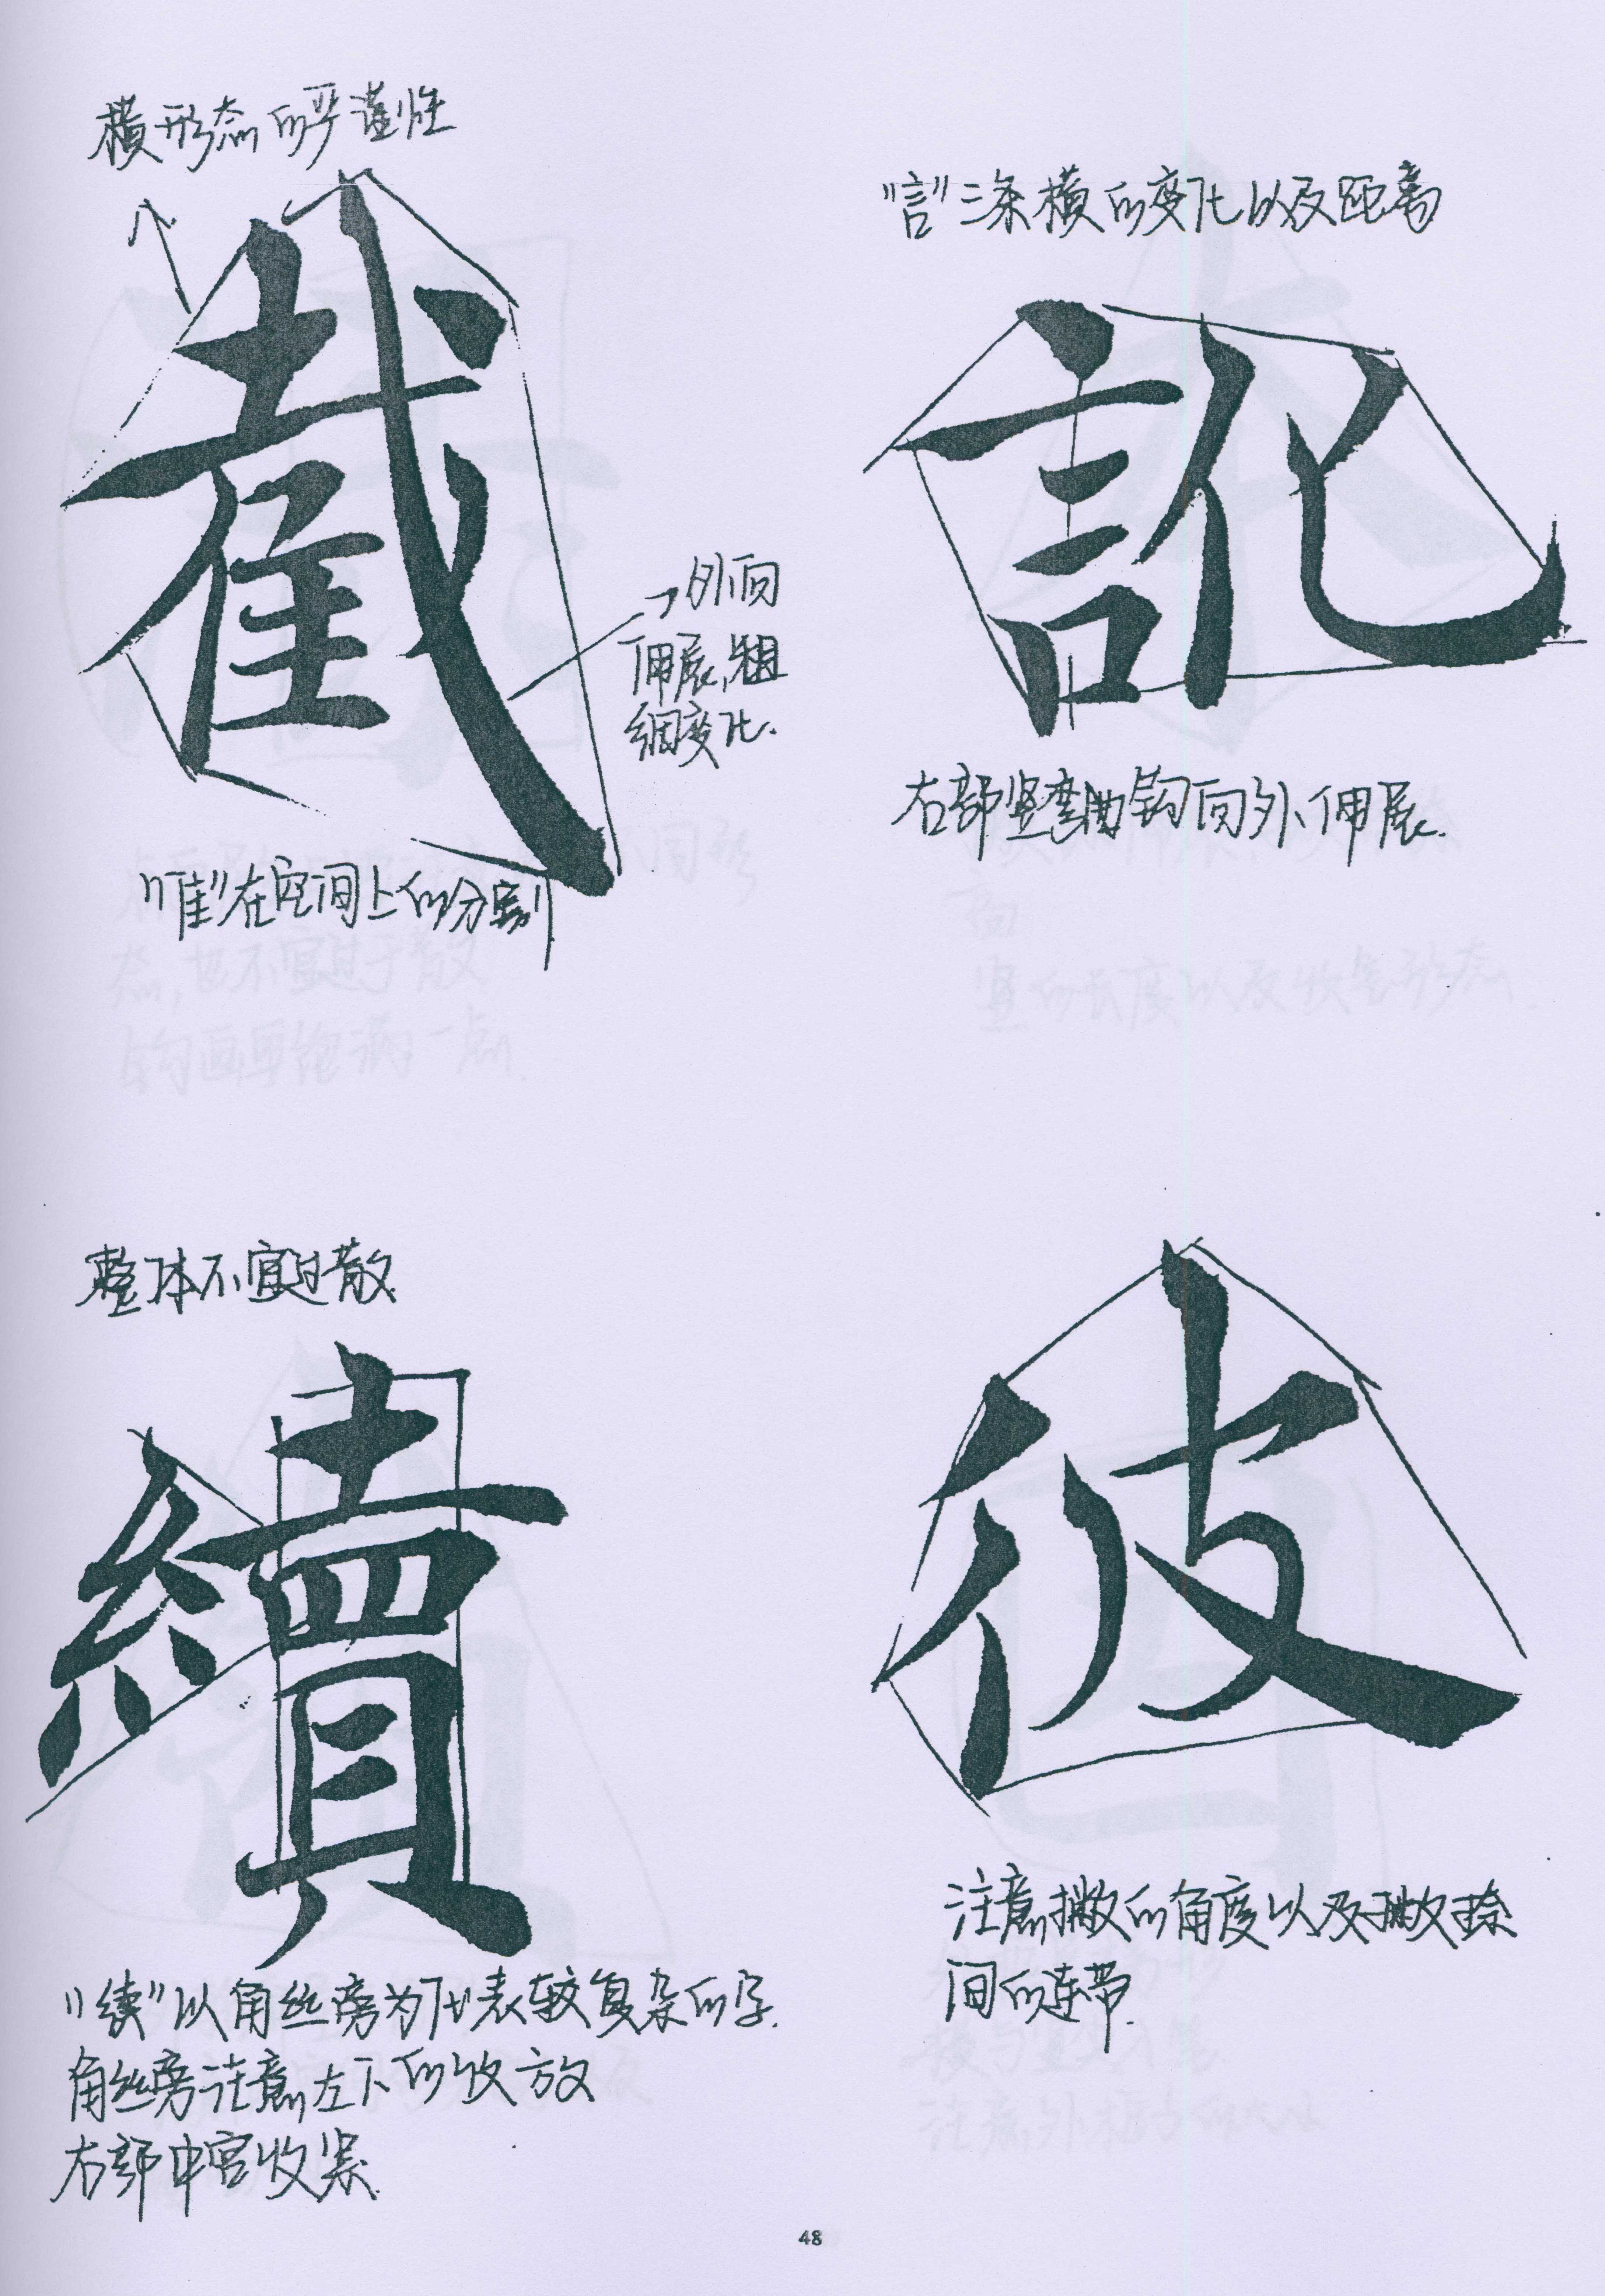 横形态的严谨性
截
→外向
伸展,粗
细变化.
"隹"在空间上的分割
"言"三条横的变化以及距离
訛
右部竖弯曲钩向外伸展.
整体不宜过散
續
"续"以角丝旁为代表较复杂的字.
角丝旁注意左下的收放
右部中宫收紧.
彼
注意撇的角度以及撇捺
间的连带.
48